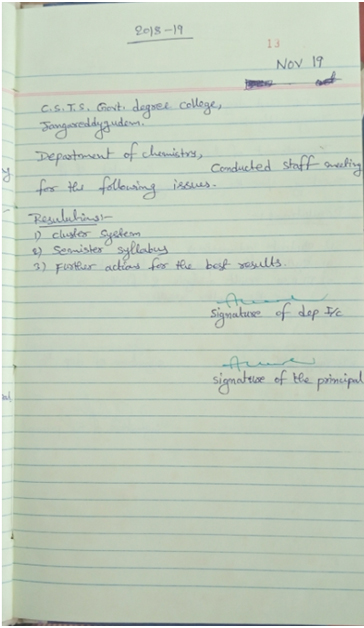 2018-19
13
Nov 19
C.S.T.S. Govt. degree college,
Jangareddygudem.
Department of chemistry, Conducted staff meeting
for the following issues.
Resulutions:-
1) cluster system
2) Semister syllabus
3) Further actions for the best results.
signature of dep I/c
signature of the principal